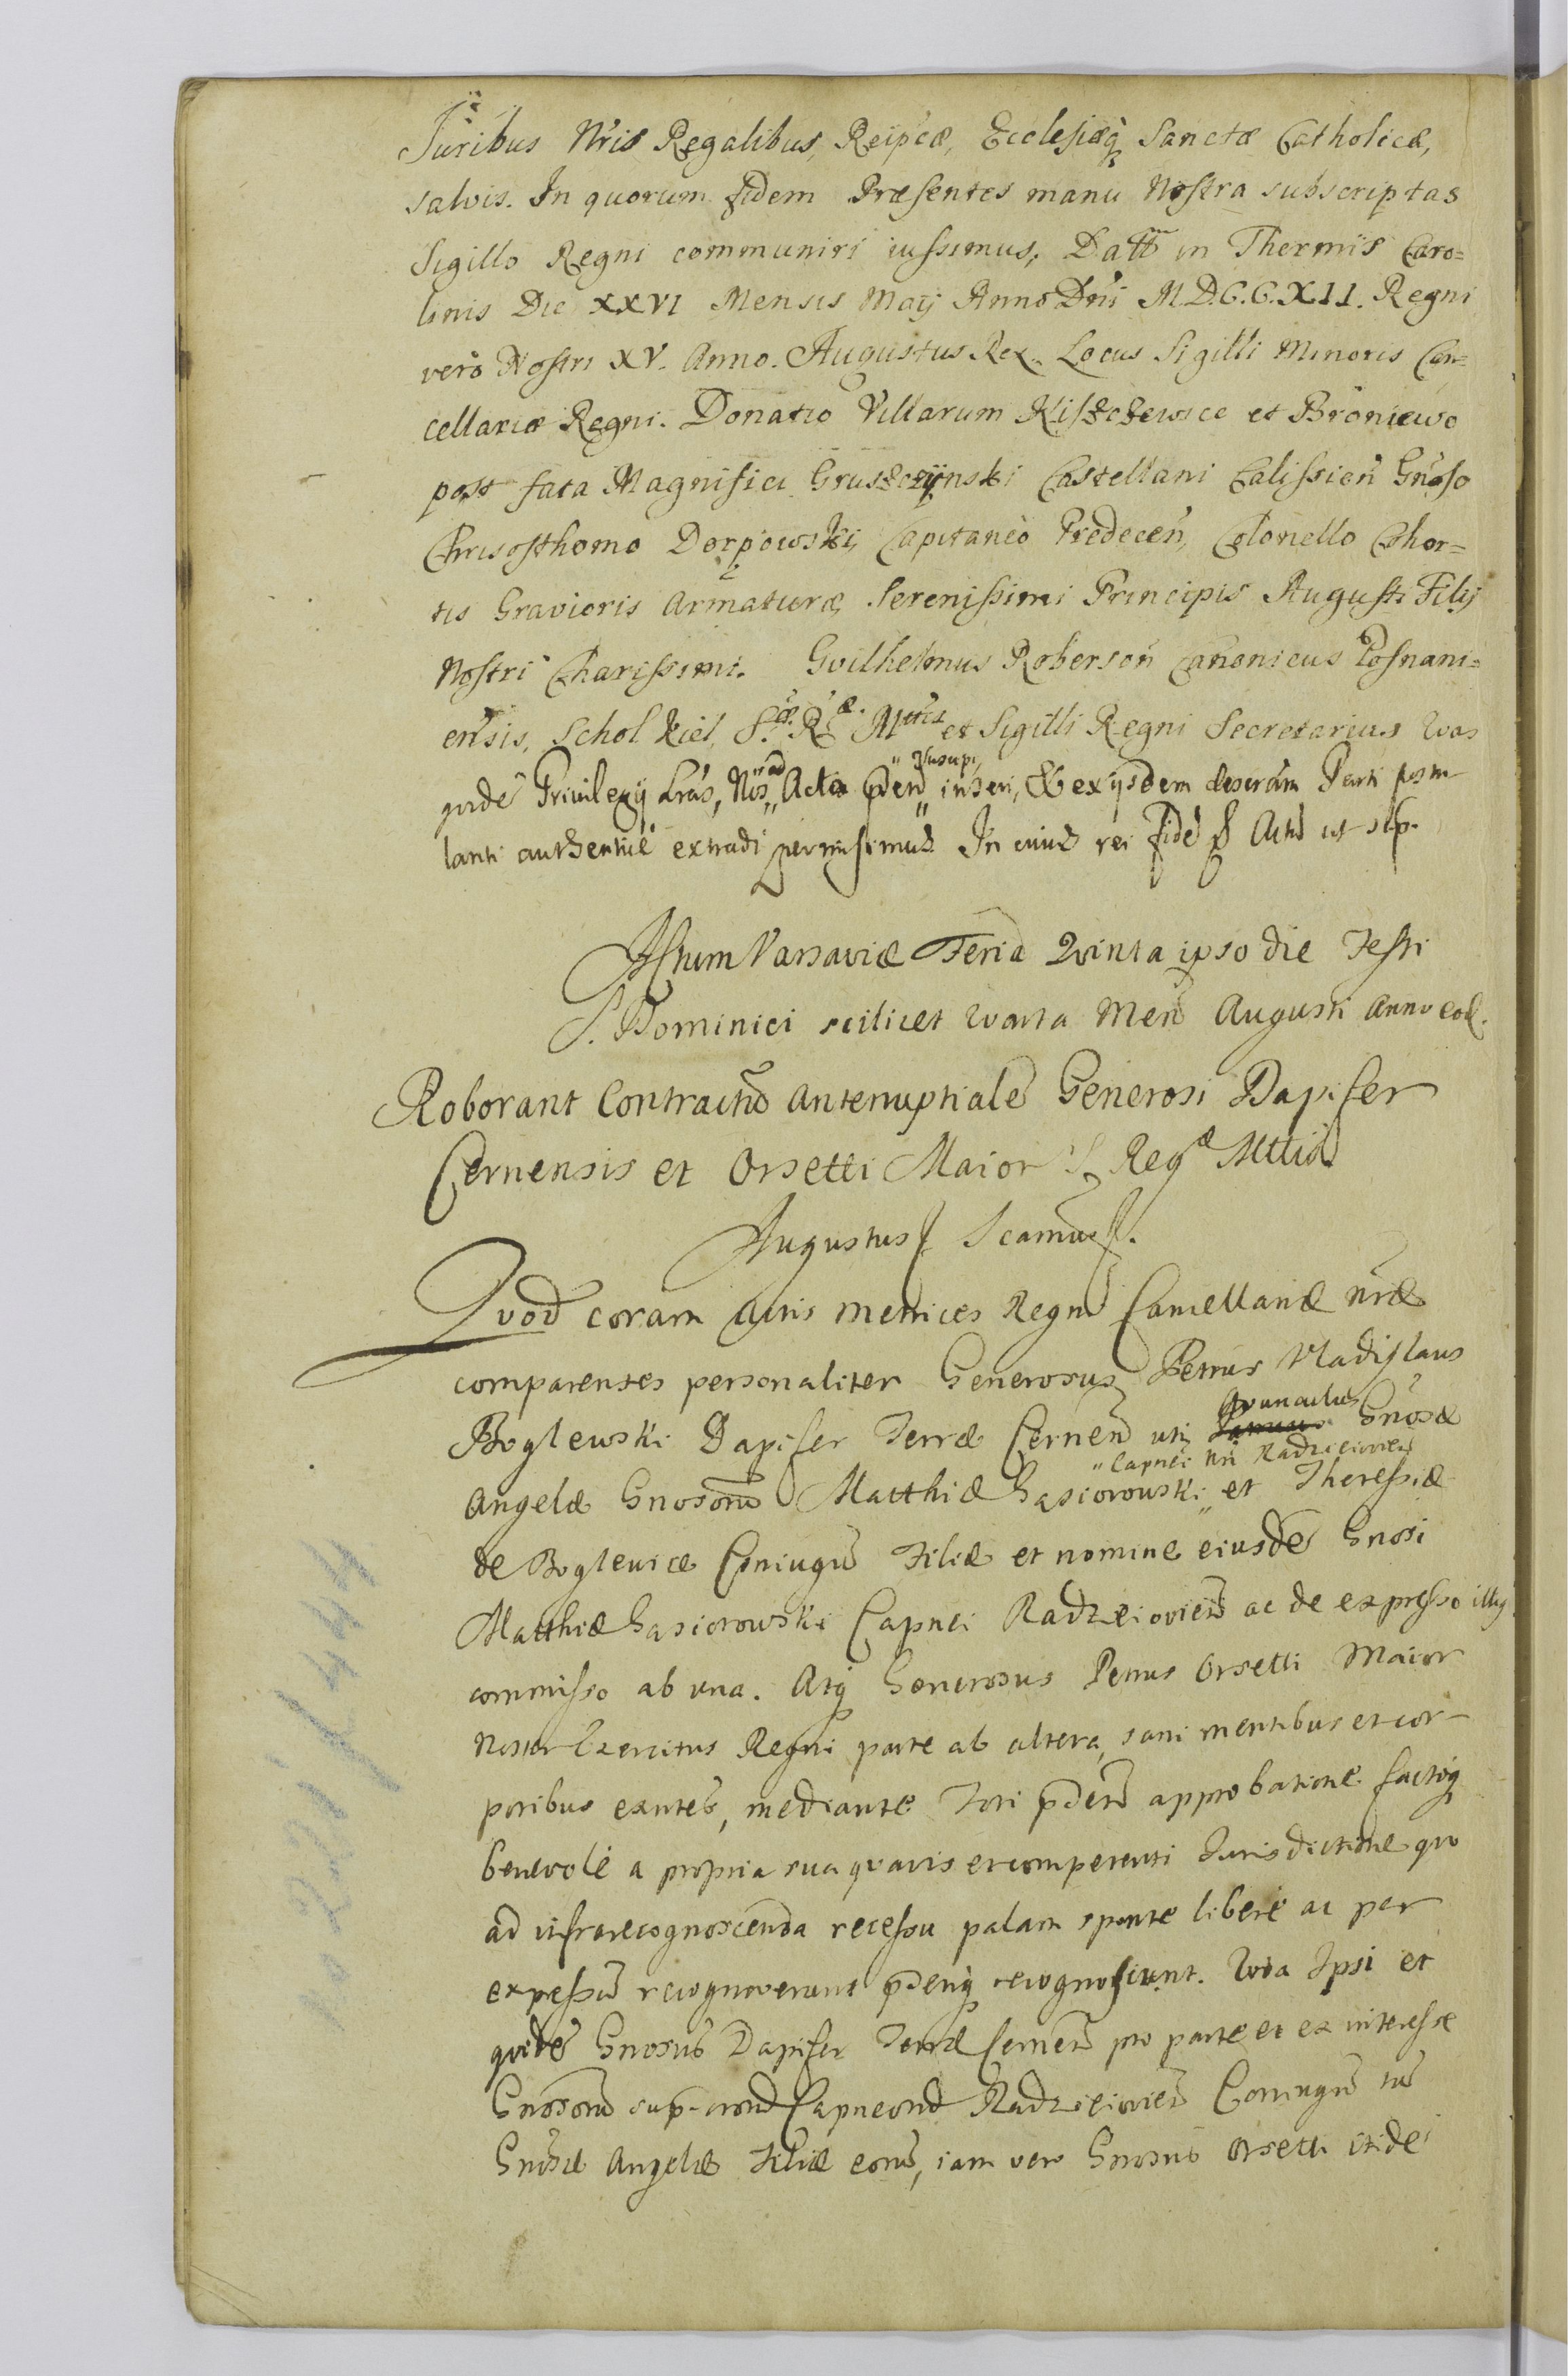 Juribus Nris Regalibus, Reipcæ, Ecclesiæq Sanctæ Catholicæ,
salvis. In quorum fidem Præsentes manu Nostra subscriptas
Sigillo Regni communiri iussimus, Datt in Thermis Caro=
linis Die XXVI Mensis Maij Anno Dni M.D.C.C.XII. Regni
vero Nostri XV. Anno. Augustus Rex. Locus Sigilli Minoris Can=
cellariæ Regni. Donatio Villarum Kiszczewice et Broniewo
post fata Magnifici Gruszczynski Castellani Calissien Gnoso
Chrisosthomo Dorpowski, Capitaneo Predecen, Colonello Cohor=
tis Gravioris Armaturæ Serenissimi Principis Augusti Filij
Nostri Charissimi. Gvilhelmus Roberson Canonicus Posnani=
ensis, Schol Kiel, S. R. Mttis et Sigilli Regni Secretarius Quas
quidē Privilegij Lras, Nos ad Acta pñtia inseri, & ex ijsdem descrām Parti postu-
lanti authenticē extradi permisimus. In cuius rei fidē Act ut sup.
Actum Varsaviæ Feria Quinta ipso die Festi
S. Dominici scilicet Quarta Men Augusti Anno eod.
Roborant Contractū Antenuptialē Generosi Dapifer
Cernensis et Orsetti Maior S. Reg Mttis
Augustus Scamus.
Quod coram Actis Metrices Regni Cancellariæ nræ
comparentes personaliter Generosus Petrus Vladislaus
Boglewski Dapifer Terræ Cernen uti Avunculus Gnosæ
Angelæ Gnosorū Matthiæ Gąsiorowski Capnei nri Radzieiovien et Theressiæ
de Boglewice Coniugū Filiæ et nomine eiusdē Gnosi
Matthiæ Gąsiorowski Capnei Radzieiovien ac de expresso illius
commisso ab una. Atq Generosus Petrus Orsetti Maior
Noster Exercitus Regni parte ab altera, sani mentibus et cor-
poribus exntes, mediante Fori pñtis approbatione factoq
benevole a propria sua quavis et competenti Jurisdictione quo
ad infrarecognoscenda recessu palam sponte libere ac per
expressum recognoverunt pñtibq recognoscunt. Quia Ipsi et
quidē Gnosus Dapifer Terræ Cernen pro parte et ex interesse
Gnosorū Capneorū Radzieiovien Coniugū tū
Gnosæ Angelæ Filiæ eorū, iam vero Gnosus Orsetti itidē